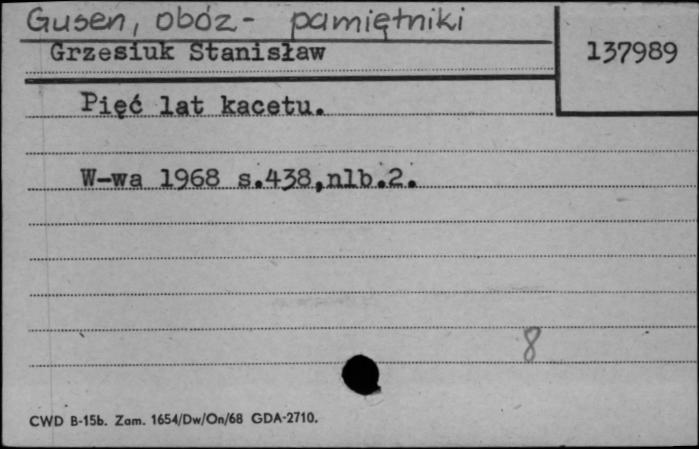 Gusen, obóz - pamiętniki
Grzesiuk Stanisław
137989
Pięć lat kacetu.
W-wa 1968 s.438,nlb.2.
8
CWD B-15b. Zam. 1654/Dw/On/68 GDA-2710.